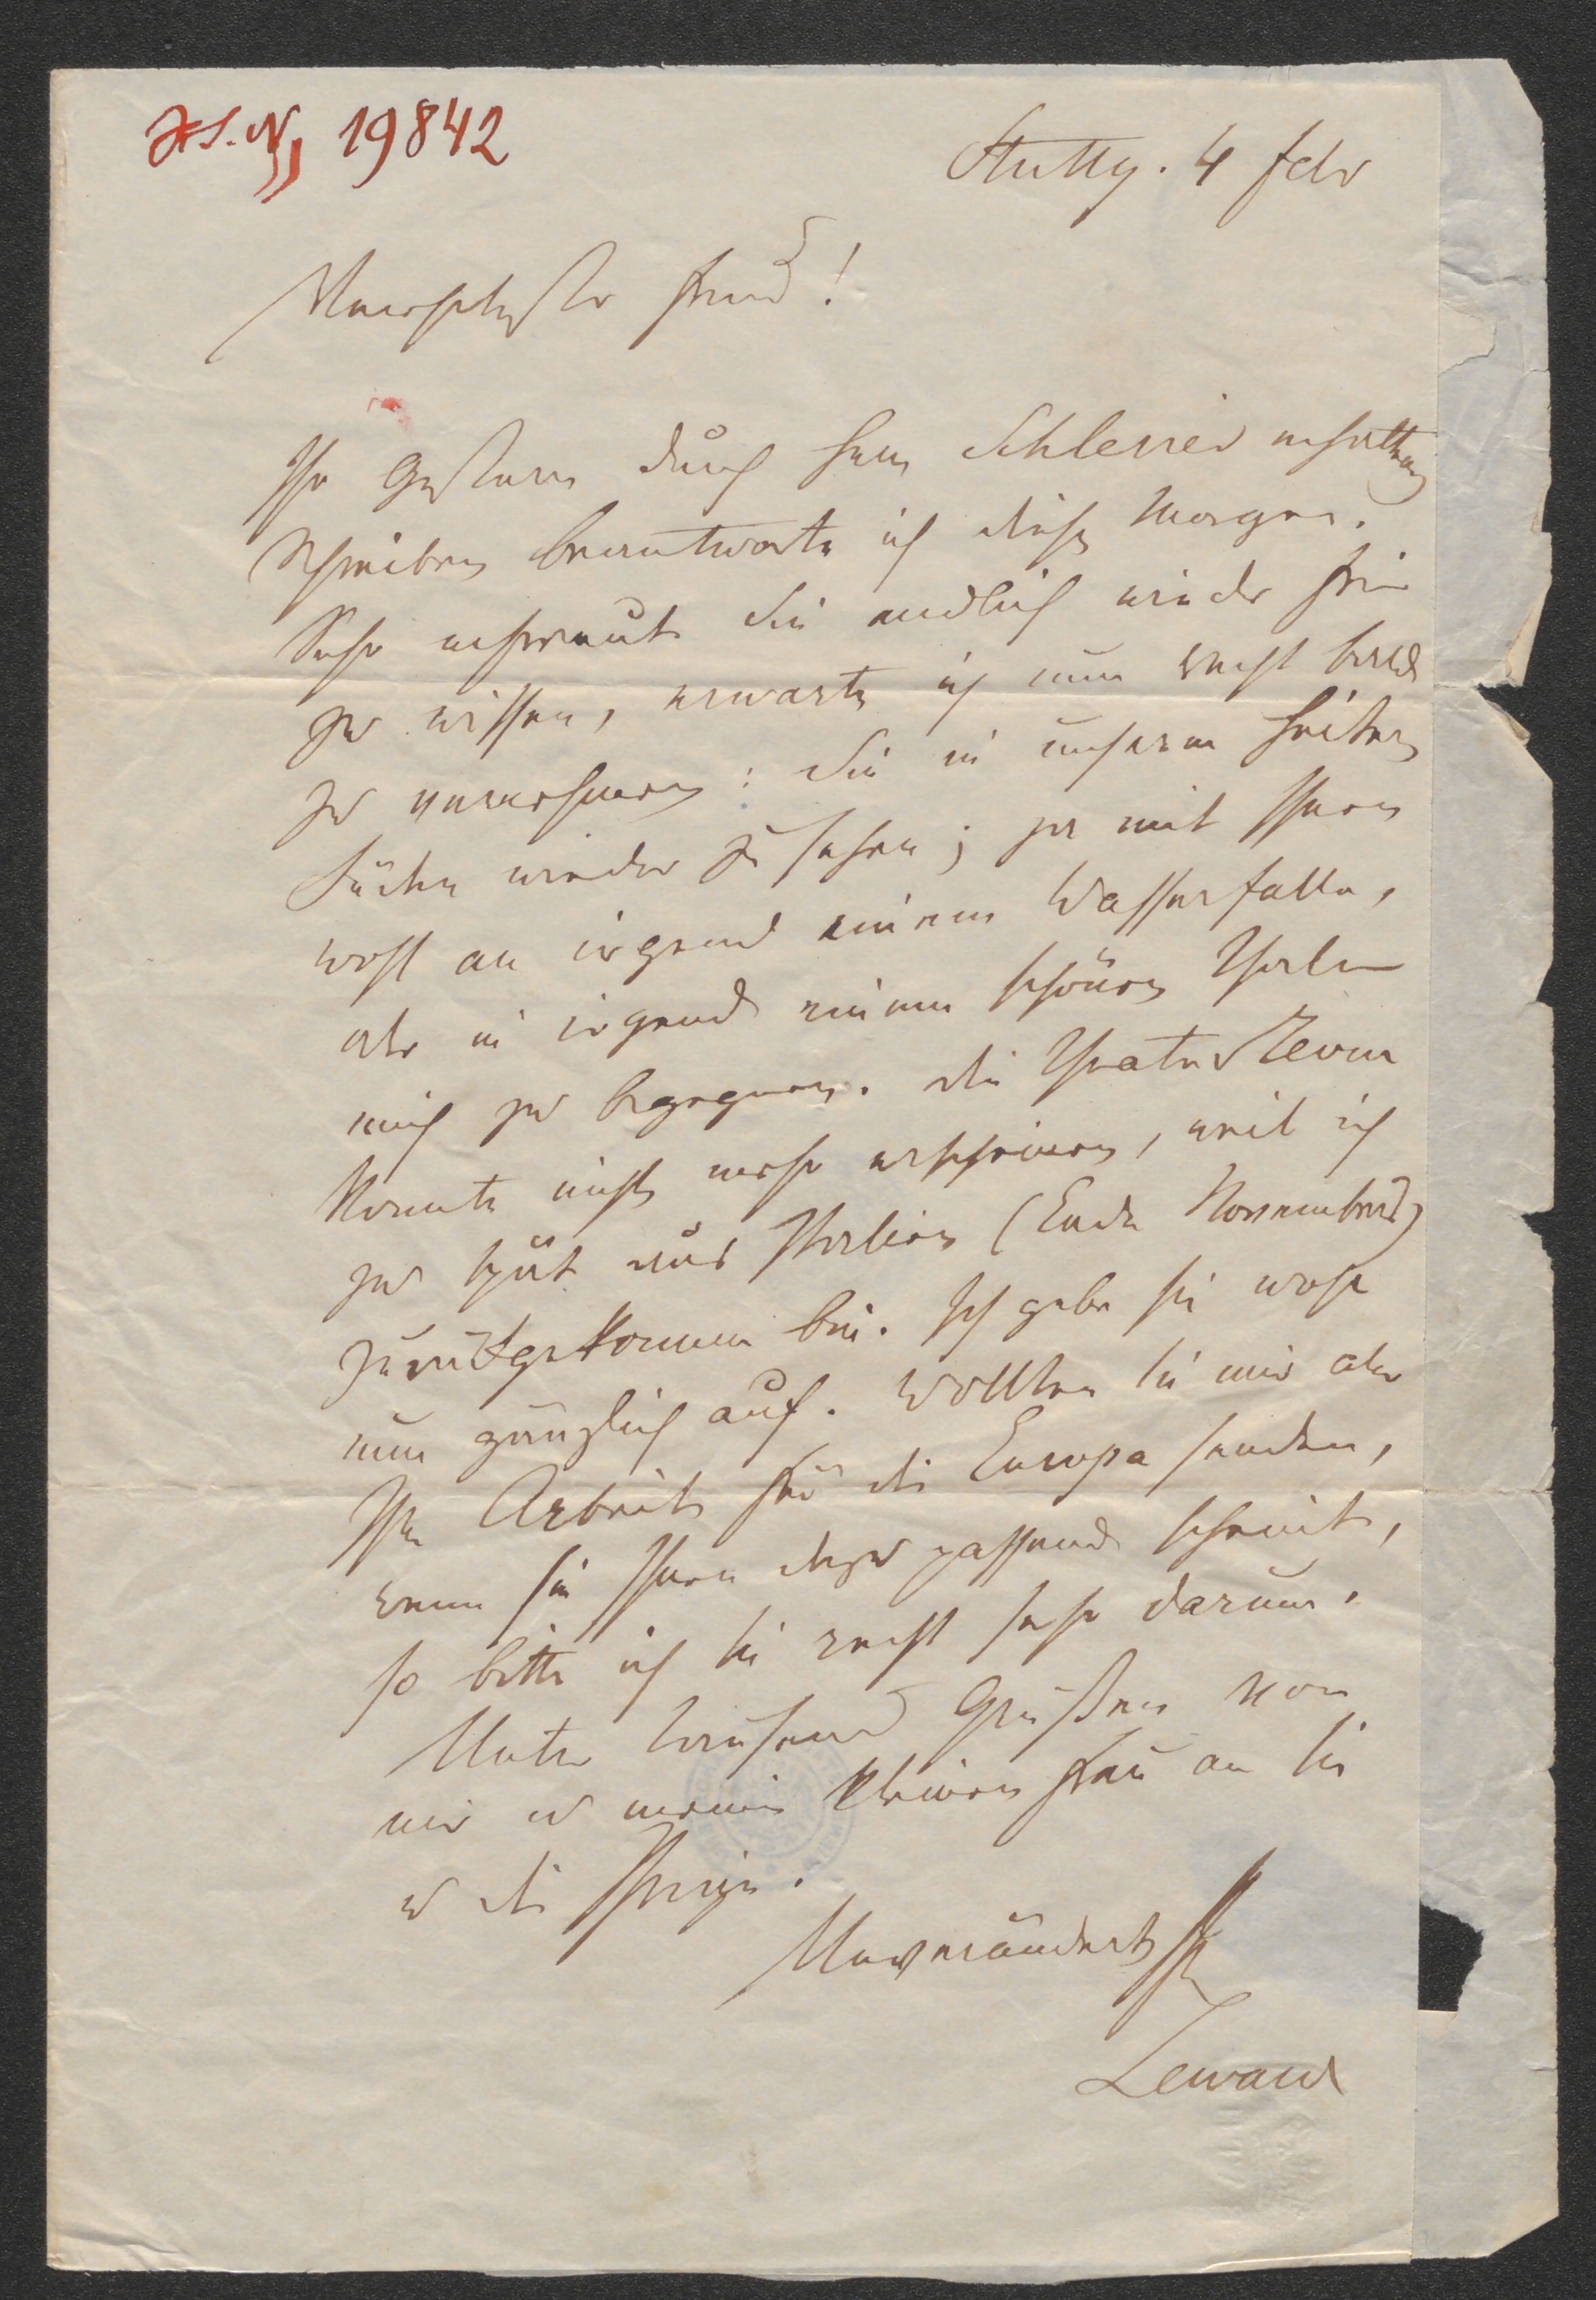 H.I.N. 19842
Stuttg. 4 Febr
Verehrtester Freund!
Ihr gestern durch Herrn Schlesier erhaltenes
Schreiben beantworte ich diesen Morgen.
Sehr erfreut Sie endlich wieder frei
zu wissen, erwarte ich nun recht bald
zu vernehmen: Sie in unserem heitern
Süden wieder zu sehen; ja mit Ihnen
wohl an irgend einem Wasserfalle,
oder in irgend einem schönen Thale
mich zu begegnen. Die Theater Revue
konnte nicht mehr erscheinen, weil ich
zu spät aus Italien (Ende Novembers)
zurückgekommen bin. Ich gebe sie wohl
nun gänzlich auf. Wollten Sie mir aber
Ihre Arbeit für die Europa senden,
wenn sie Ihnen dazu passend scheint,
so bitte ich Sie recht sehr darum.
Unter tausend Grüßen von
mir u meiner kleinen Frau an Sie
u die Ihrige.
Unverändert Ihr
Lewald